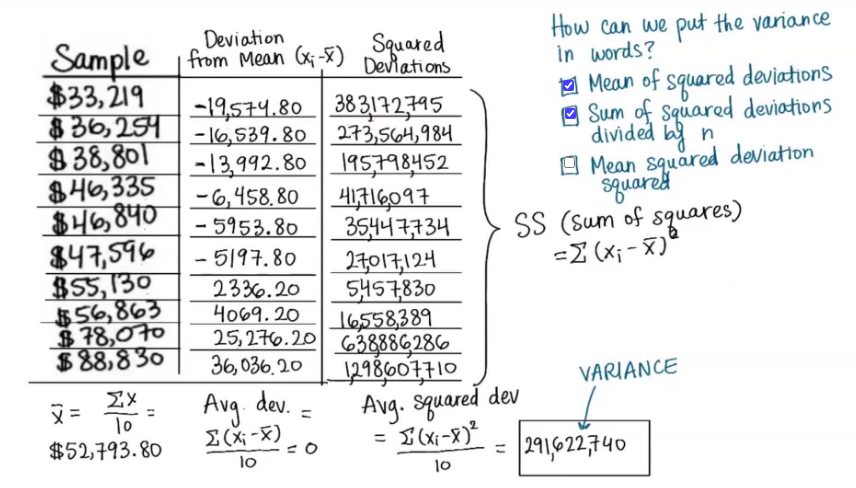 Sample
Deviation
from Mean (xᵢ-x̄)
Squared
Deviations
$33,219 -19,574.80 383,172,795
$36,254 -16,539.80 273,564,984
$38,801 -13,992.80 195,798,452
$46,335 -6,458.80 41,716,097
$46,840 -5953.80 35,447,734
$47,596 -5197.80 27,017,124
$55,130 2336.20 5,457,830
$56,863 4069.20 16,558,389
$78,070 25,276.20 638,886,286
$88,830 36,036.20 1,298,607,710
x̄ = Σx/10 =
$52,793.80
Avg. dev. =
Σ(xᵢ-x̄)/10 = 0
Avg. squared dev
= Σ(xᵢ-x̄)²/10 = 291,622,740
VARIANCE
How can we put the variance
in words?
Mean of squared deviations
Sum of squared deviations
divided by n
Mean squared deviation
squared
SS (sum of squares)
= Σ(xᵢ - x̄)²